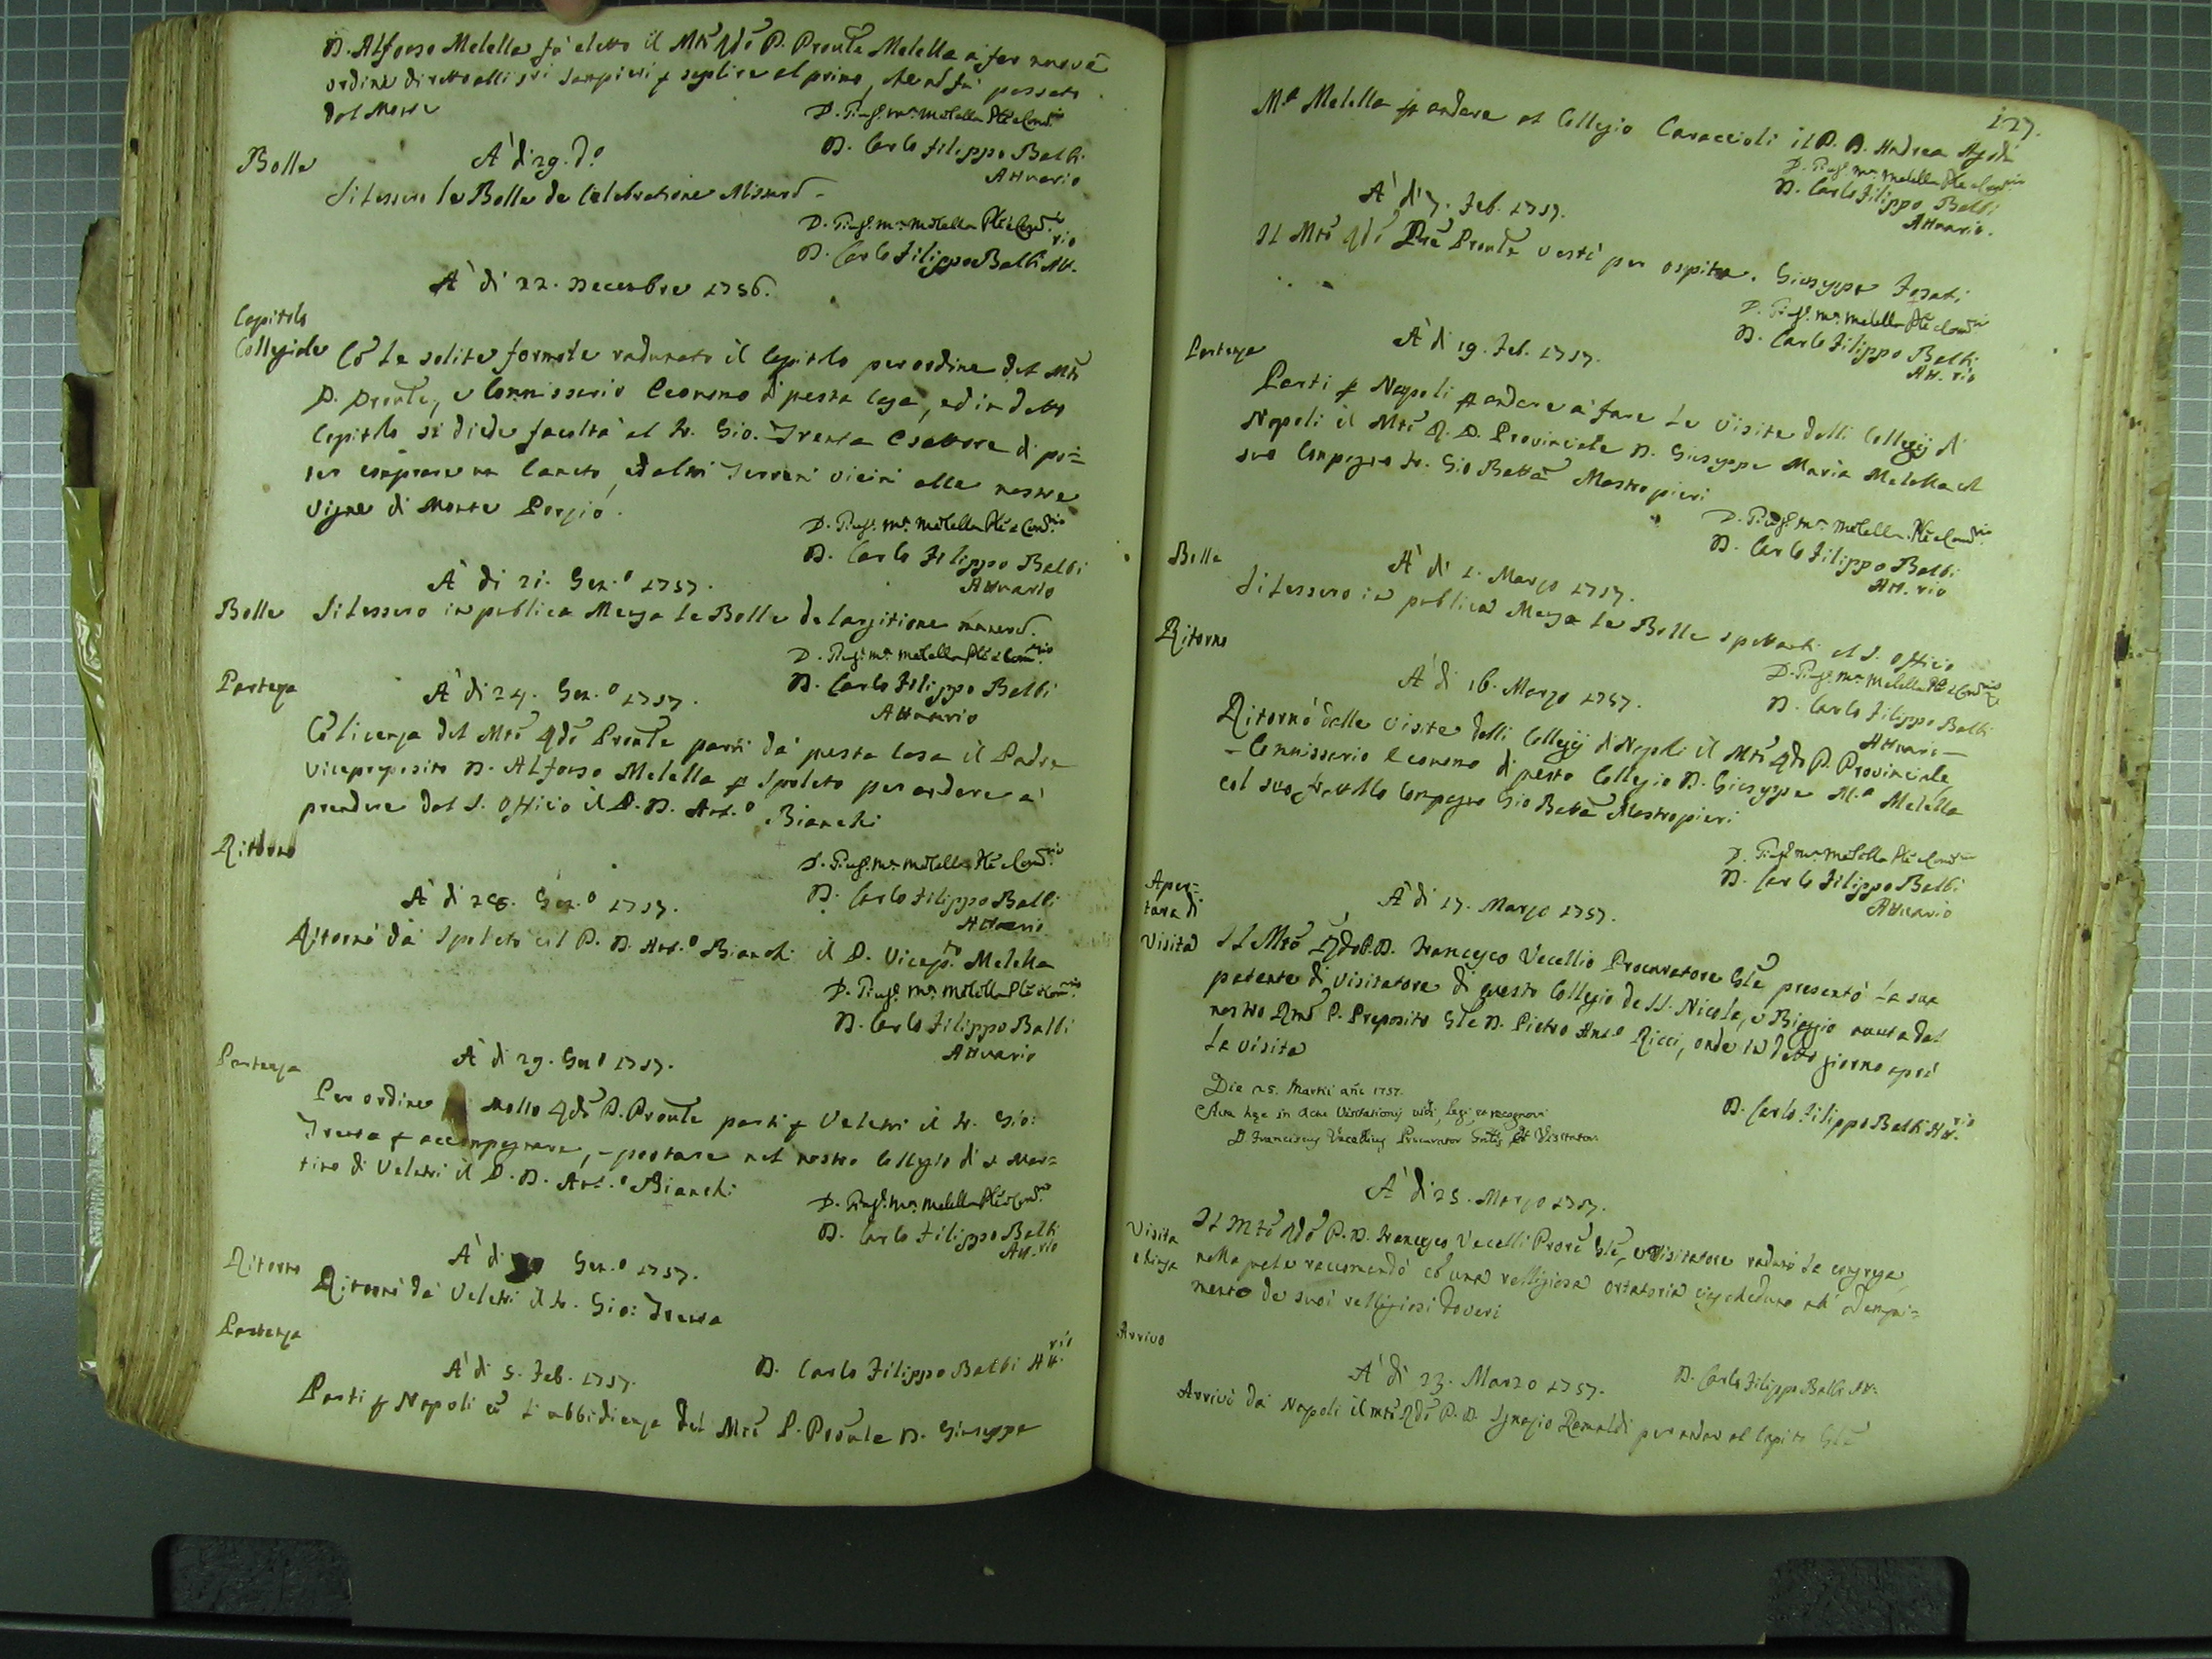 D. Alfonso Melella fù eletto il Mtō Rdō P. Proūle Melella à far nuovo
ordine diretto alli sri Sampieri p supplire al primo, che nō fù passato
dal Monte
D. Giusē. Ma. Melella Ple e Comrio
D. Carlo Filippo Balbi
Attuario
Bolle
A' di 29. do
Si lessero le Bolle de Celebratione Missarū
D. Giusē. Ma. Melella Ple e Comrio
D. Carlo Filippo Balbi Att.rio
A' di 22. Decembre 1756.
Capitolo
Collegiale
Cō le solite formole radunato il Capitolo per ordine del Mtō
P. Proūle, e Commissario Economo di questa Casa, ed in detto
Capitolo si diede facoltà al fr. Gio. Trenta Esattore di po=
ter comprare un Caneto, ed altri Terreni vicini alle nostre
vigne di Monte Porzio.
D. Giusē. Ma. Melella Ple e Comrio
D. Carlo Filippo Balbi
Attuario
A' di 21. Gen.o 1757.
Bolle
Si lessero in publica Mensa le Bolle de largitione munerū.
D. Giusē. Ma. Melella Ple e Comrio
D. Carlo Filippo Balbi
Attuario
Partenza
A' di 24. Gen.o 1757.
Cō licenza del Mtō Rdō Proūle partì da questa Casa il Padre
Vicepreposito D. Alfonso Melella p Spoleto per andare à
prendere dal S. Officio il P. D. Ant.o Bianchi
D. Giusē. Ma. Melella Ple e Comrio
D. Carlo Filippo Balbi
Attuario
Ritorno
A' di 28. Gen.o 1757.
Ritornò da Spoleto col P. D. Ant.o Bianchi il P. Vicep.to Melella
D. Giusē. Ma. Melella Ple e Comrio
D. Carlo Filippo Balbi
Attuario
Partenza
A' di 29. Gen.o 1757.
Per ordine Molto Rdō P. Proūle partì p Veletri il fr. Gio:
Trenta p accompagnare, e portare nel nostro Collegio di S. Mar=
tino di Veletri il P. D. Ant.o Bianchi
D. Giusē. Ma. Melella Ple e Comrio
D. Carlo Filippo Balbi
Att.rio
Ritorno
A' di Gen.o 1757.
Ritornò da Veletri il fr. Gio: Trenta
D. Carlo Filippo Balbi Att.rio
Partenza
A' di 5. Feb. 1757.
Partì p Napoli cō l'ubbidienza del Mtō P. Proūle D. Giuseppe
127.
Ma Melella p andare al Collegio Caraccioli il P. D. Andrea
D. Giusē. Ma. Melella Ple e Comrio
D. Carlo Filippo Balbi
Attuario.
A' di 7. Feb. 1757.
Il Mtō Rdō Pre Proūle vestì per ospite Giuseppe
D. Giusē. Ma. Melella Ple e Comrio
D. Carlo Filippo Balbi
Att.rio
Partenza
A' di 19. Feb. 1757.
Partì p Napoli p andare à fare le visite delli Collegij di
Napoli il Mtō R. P. Provinciale D. Giuseppe Maria Melella col
suo Compagno fr. Gio Battā Mastropieri
D. Giusē. Ma. Melella Ple e Comrio
D. Carlo Filippo Balbi
Att.rio
Bolle
A' di 1. Marzo 1757.
Si lessero in publica Mensa le Bolle spettanti al S. Officio
D. Giusē. Ma. Melella Ple e Comrio
D. Carlo Filippo Balbi
Attuario
Ritorno
A' di 16. Marzo 1757.
Ritornò dalle visite delli Collegij di Napoli il Mtō Rdō P. Provinciale
Commissario Economo di questo Collegio D. Giuseppe M.a Melella
col suo fratello Compagno Gio Battā Mastropieri
D. Giusē. Ma. Melella Ple e Comrio
D. Carlo Filippo Balbi
Attuario
Aper=
tura di
Visita
A' di 17. Marzo 1757.
Il Mtō Rdo P. D. Francesco Vecellio Procuratore Gle presentò la sua
patente di visitatore di questo Collegio de SS. Nicola, e Biaggio avuta dal
nostro Rmō P. Preposito Gle D. Pietro Ant.o Ricci, onde in detto giorno aprì
la visita
D. Carlo Filippo Balbi Att.rio
Die 25. Martii añi 1757.
Acta hęc in actu Visitationis vidi, legi, et recognovi
D. Franciscus Vecellius Procurator Gnlis, et Visitator.
A' di 25. Marzo 1757.
Visita
chiusa
Il Mtō Rdō P. D. Francesco Vecelli Procrē Gle, e Visitatore radunò la congrega,
nella quale raccomandò cō una relligiosa ortatoria ciascheduno all' adempi=
mento de suoi relligiosi doveri
D. Carlo Filippo Balbi Att.
Arrivo
A' di 23. Marzo 1757.
Arrivò da Napoli il Mtō Rdō P. D. Ignazio Romoldi per andar al Capito Gle